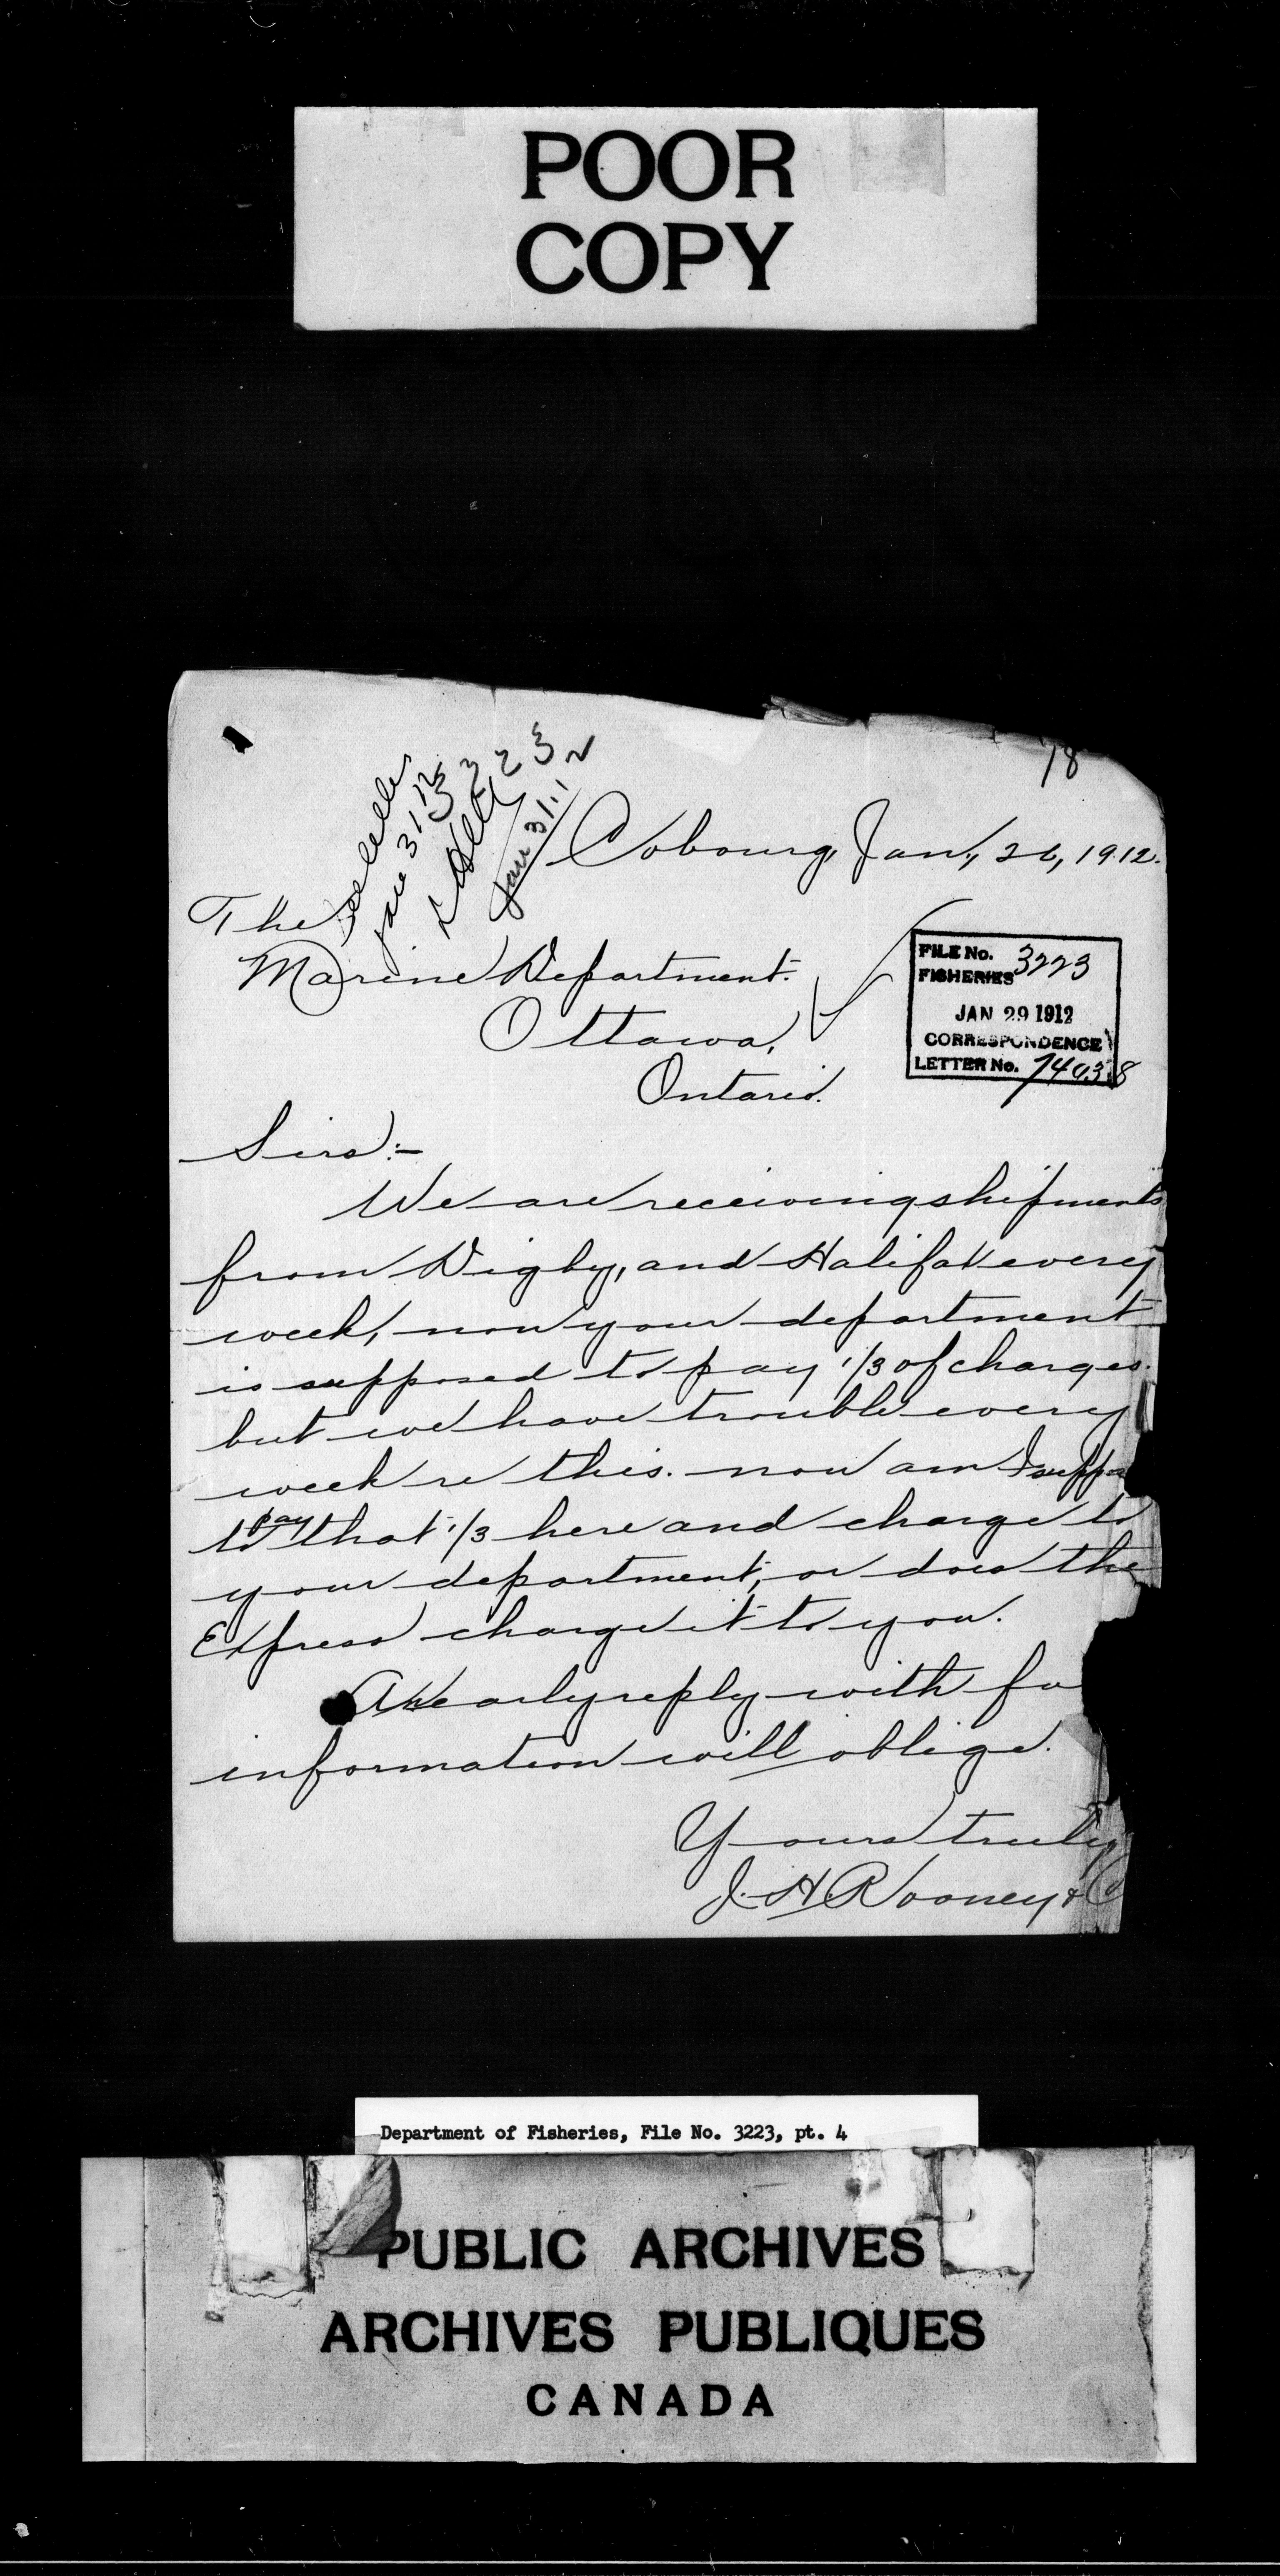 POOR
COPY
78
3223
Jan 31/12
Jan 31.12
Cobourg, Jan., 26, 1912.
The
Marine Department.
Ottawa,
Ontario.
FILE No. 3223
FISHERIES
JAN 29 1912
CORRESPONDENCE
LETTER No. 74038
Sirs:-
We are receiving shipments
from Digby, and Halifax every
week, now your department
is supposed to pay 1/3 of charges.
but we have trouble every
week re this. now am I suppo
to pay that 1/3 here and charge to
your department, or does the
Express charge it to you.
An early reply with fu
information will oblige.
Yours truly
J. H. Rooney & C
Department of Fisheries, File No. 3223, pt. 4
PUBLIC ARCHIVES
ARCHIVES PUBLIQUES
CANADA